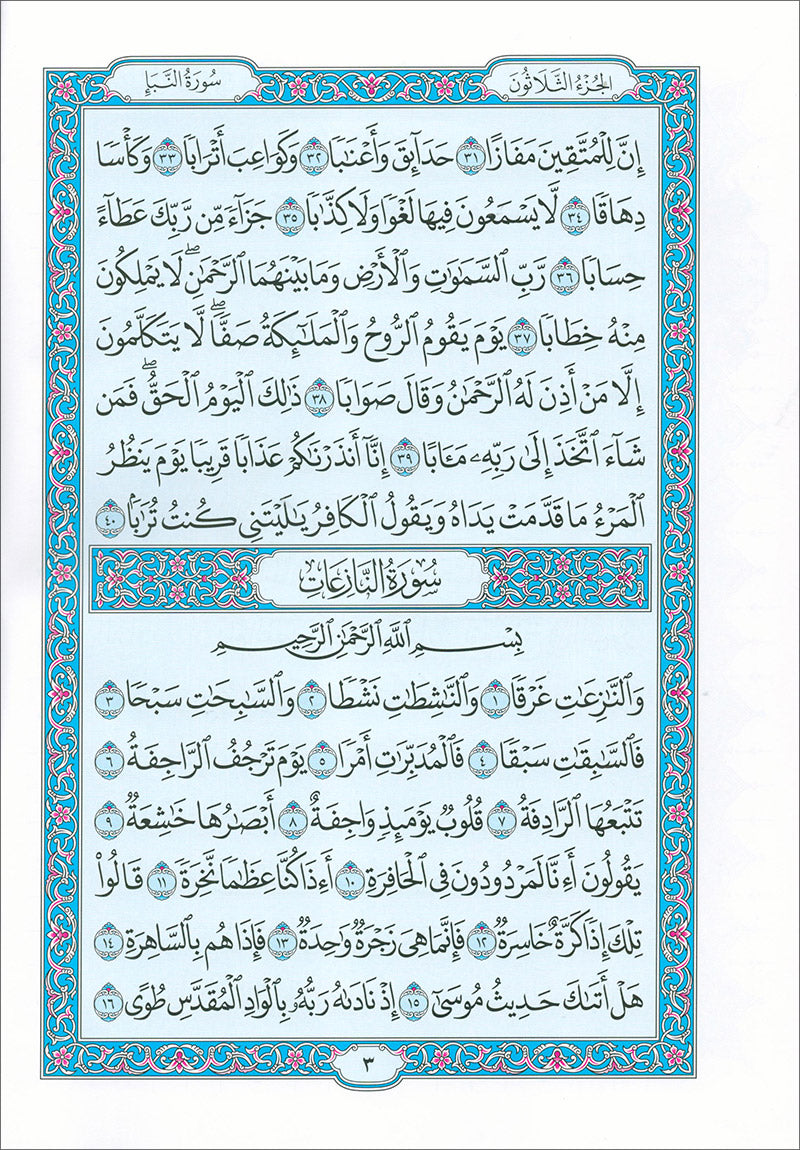 الجُزْءُ الثَّلَاثُونَ
سُورَةُ النَّبَإِ
إِنَّ لِلْمُتَّقِينَ مَفَازًا ٣١ حَدَآئِقَ وَأَعْنَٰبًا ٣٢ وَكَوَاعِبَ أَتْرَابًا ٣٣ وَكَأْسًا
دِهَاقًا ٣٤ لَّا يَسْمَعُونَ فِيهَا لَغْوًا وَلَا كِذَّٰبًا ٣٥ جَزَآءً مِّن رَّبِّكَ عَطَآءً
حِسَابًا ٣٦ رَّبِّ ٱلسَّمَٰوَٰتِ وَٱلْأَرْضِ وَمَا بَيْنَهُمَا ٱلرَّحْمَٰنِۖ لَا يَمْلِكُونَ
مِنْهُ خِطَابًا ٣٧ يَوْمَ يَقُومُ ٱلرُّوحُ وَٱلْمَلَٰٓئِكَةُ صَفًّاۖ لَّا يَتَكَلَّمُونَ
إِلَّا مَنْ أَذِنَ لَهُ ٱلرَّحْمَٰنُ وَقَالَ صَوَابًا ٣٨ ذَٰلِكَ ٱلْيَوْمُ ٱلْحَقُّۖ فَمَن
شَآءَ ٱتَّخَذَ إِلَىٰ رَبِّهِۦ مَـَٔابًا ٣٩ إِنَّآ أَنذَرْنَٰكُمْ عَذَابًا قَرِيبًا يَوْمَ يَنظُرُ
ٱلْمَرْءُ مَا قَدَّمَتْ يَدَاهُ وَيَقُولُ ٱلْكَافِرُ يَٰلَيْتَنِي كُنتُ تُرَٰبًۢا ٤٠
سُورَةُ النَّازِعَاتِ
بِسْمِ ٱللَّهِ ٱلرَّحْمَٰنِ ٱلرَّحِيمِ
وَٱلنَّٰزِعَٰتِ غَرْقًا ١ وَٱلنَّٰشِطَٰتِ نَشْطًا ٢ وَٱلسَّٰبِحَٰتِ سَبْحًا ٣
فَٱلسَّٰبِقَٰتِ سَبْقًا ٤ فَٱلْمُدَبِّرَٰتِ أَمْرًا ٥ يَوْمَ تَرْجُفُ ٱلرَّاجِفَةُ ٦
تَتْبَعُهَا ٱلرَّادِفَةُ ٧ قُلُوبٌ يَوْمَئِذٍ وَاجِفَةٌ ٨ أَبْصَٰرُهَا خَٰشِعَةٌ ٩
يَقُولُونَ أَءِنَّا لَمَرْدُودُونَ فِي ٱلْحَافِرَةِ ١٠ أَءِذَا كُنَّا عِظَٰمًا نَّخِرَةً ١١ قَالُوا۟
تِلْكَ إِذًا كَرَّةٌ خَاسِرَةٌ ١٢ فَإِنَّمَا هِيَ زَجْرَةٌ وَٰحِدَةٌ ١٣ فَإِذَا هُم بِٱلسَّاهِرَةِ ١٤
هَلْ أَتَىٰكَ حَدِيثُ مُوسَىٰٓ ١٥ إِذْ نَادَىٰهُ رَبُّهُۥ بِٱلْوَادِ ٱلْمُقَدَّسِ طُوًى ١٦
٣